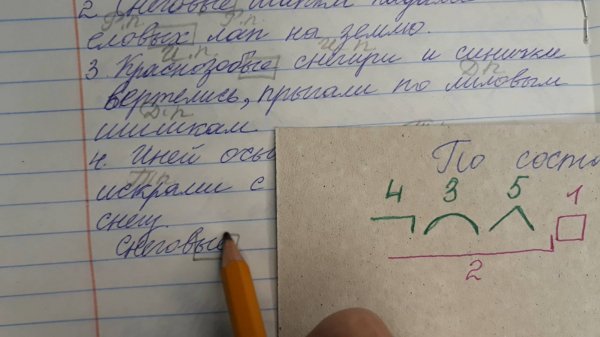 2. Снеговые шапки падали с
Р.п. Р.п.
еловых лап на землю.
И.п. И.п.
3. Краснозобые снегири и синички
Д.п.
вертелись, прыгали по еловым
Д.п.
шишкам
4. Иней осы
искрами с
снег.
снеговые
По соста
4 3 5 1
2